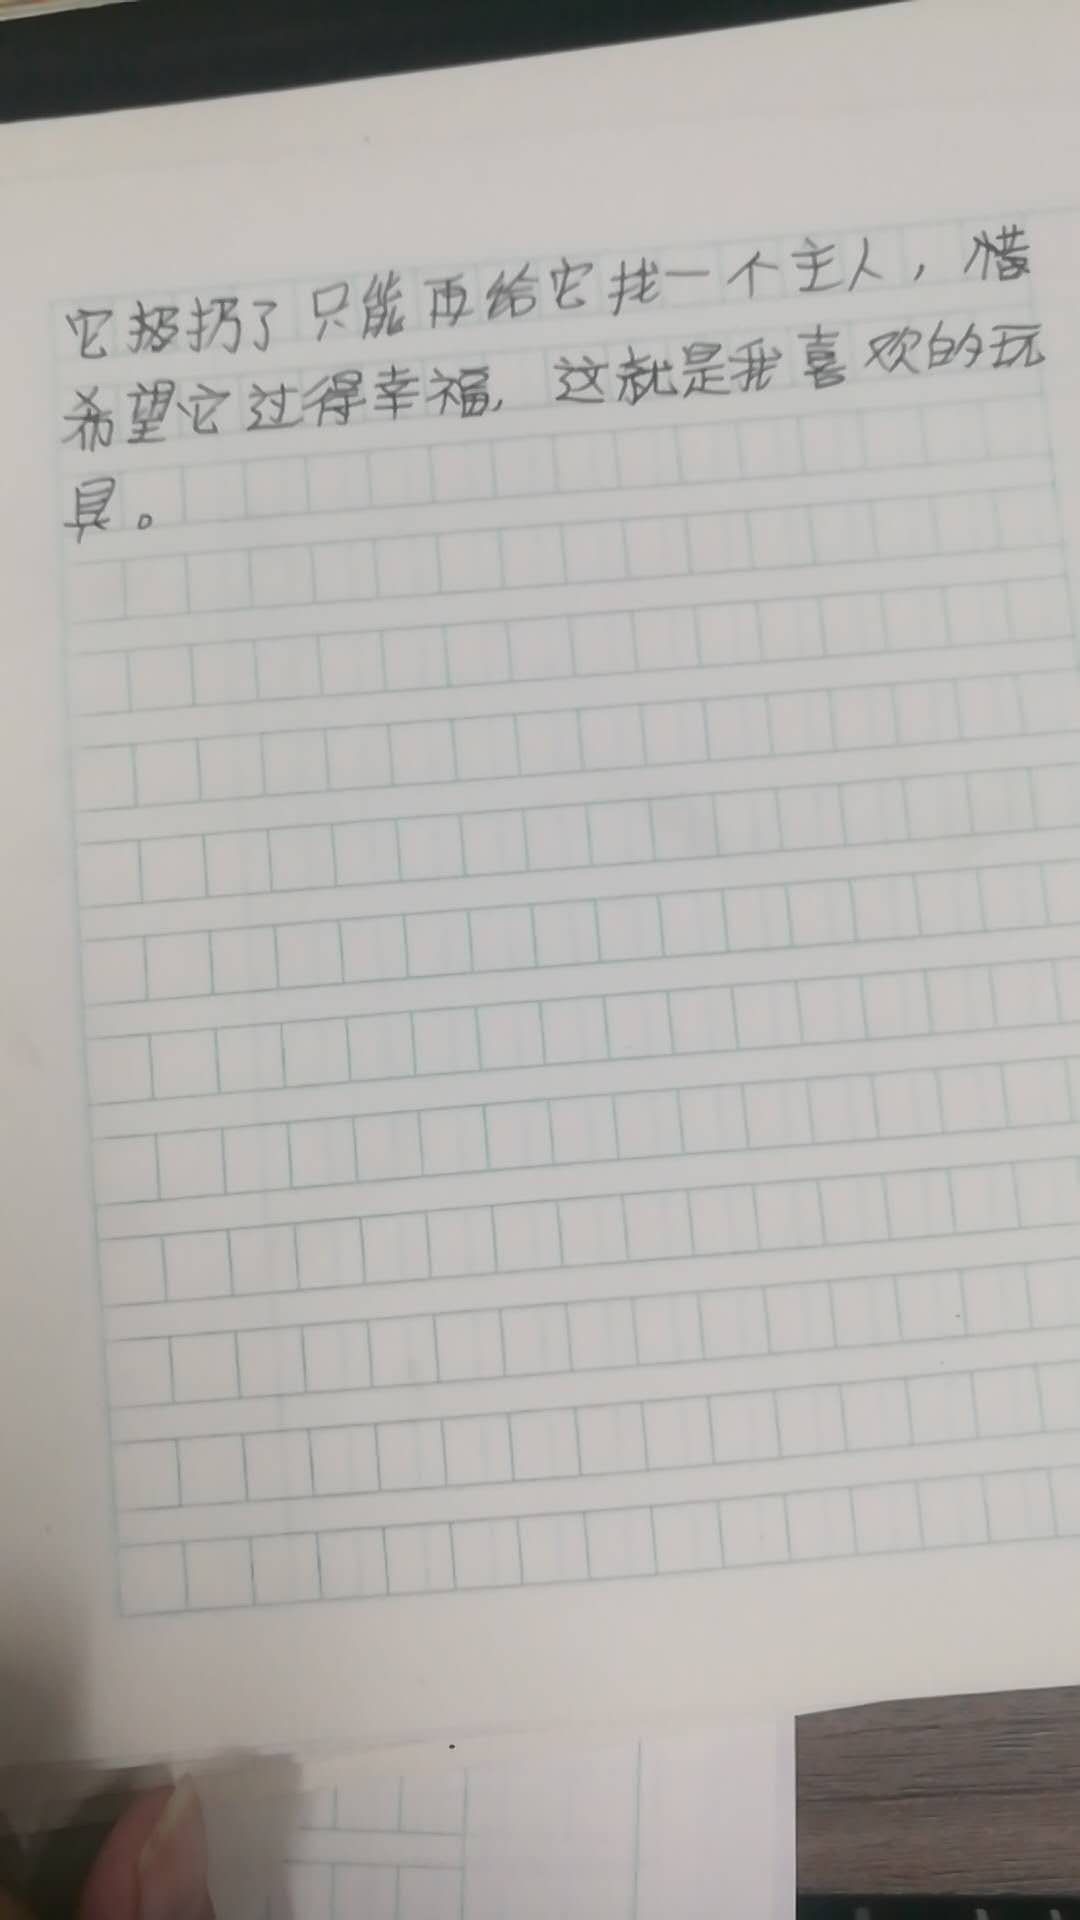 它扔了只能再给它找一个主人，
希望它过得幸福，这就是我喜欢的玩
具。